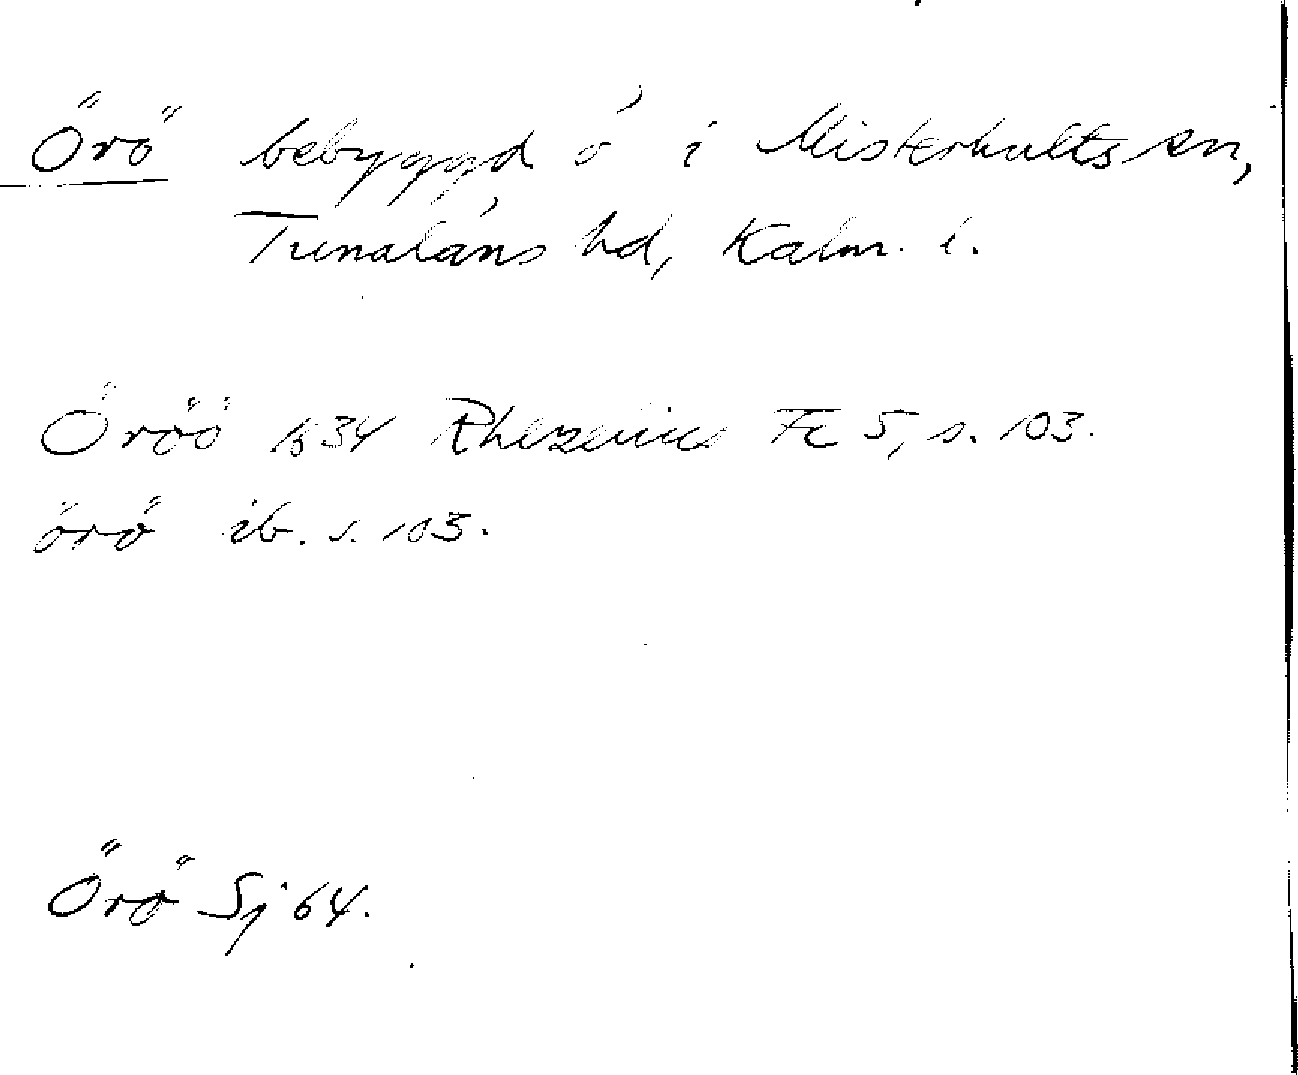 Örö bebyggd ö i Misterhults sn,
Tunaläns hd, Kalm. l.
Öröö 1634 Rhezelius Fc 5, s. 103.
örö ib. s. 103.
Örö Sj 64.